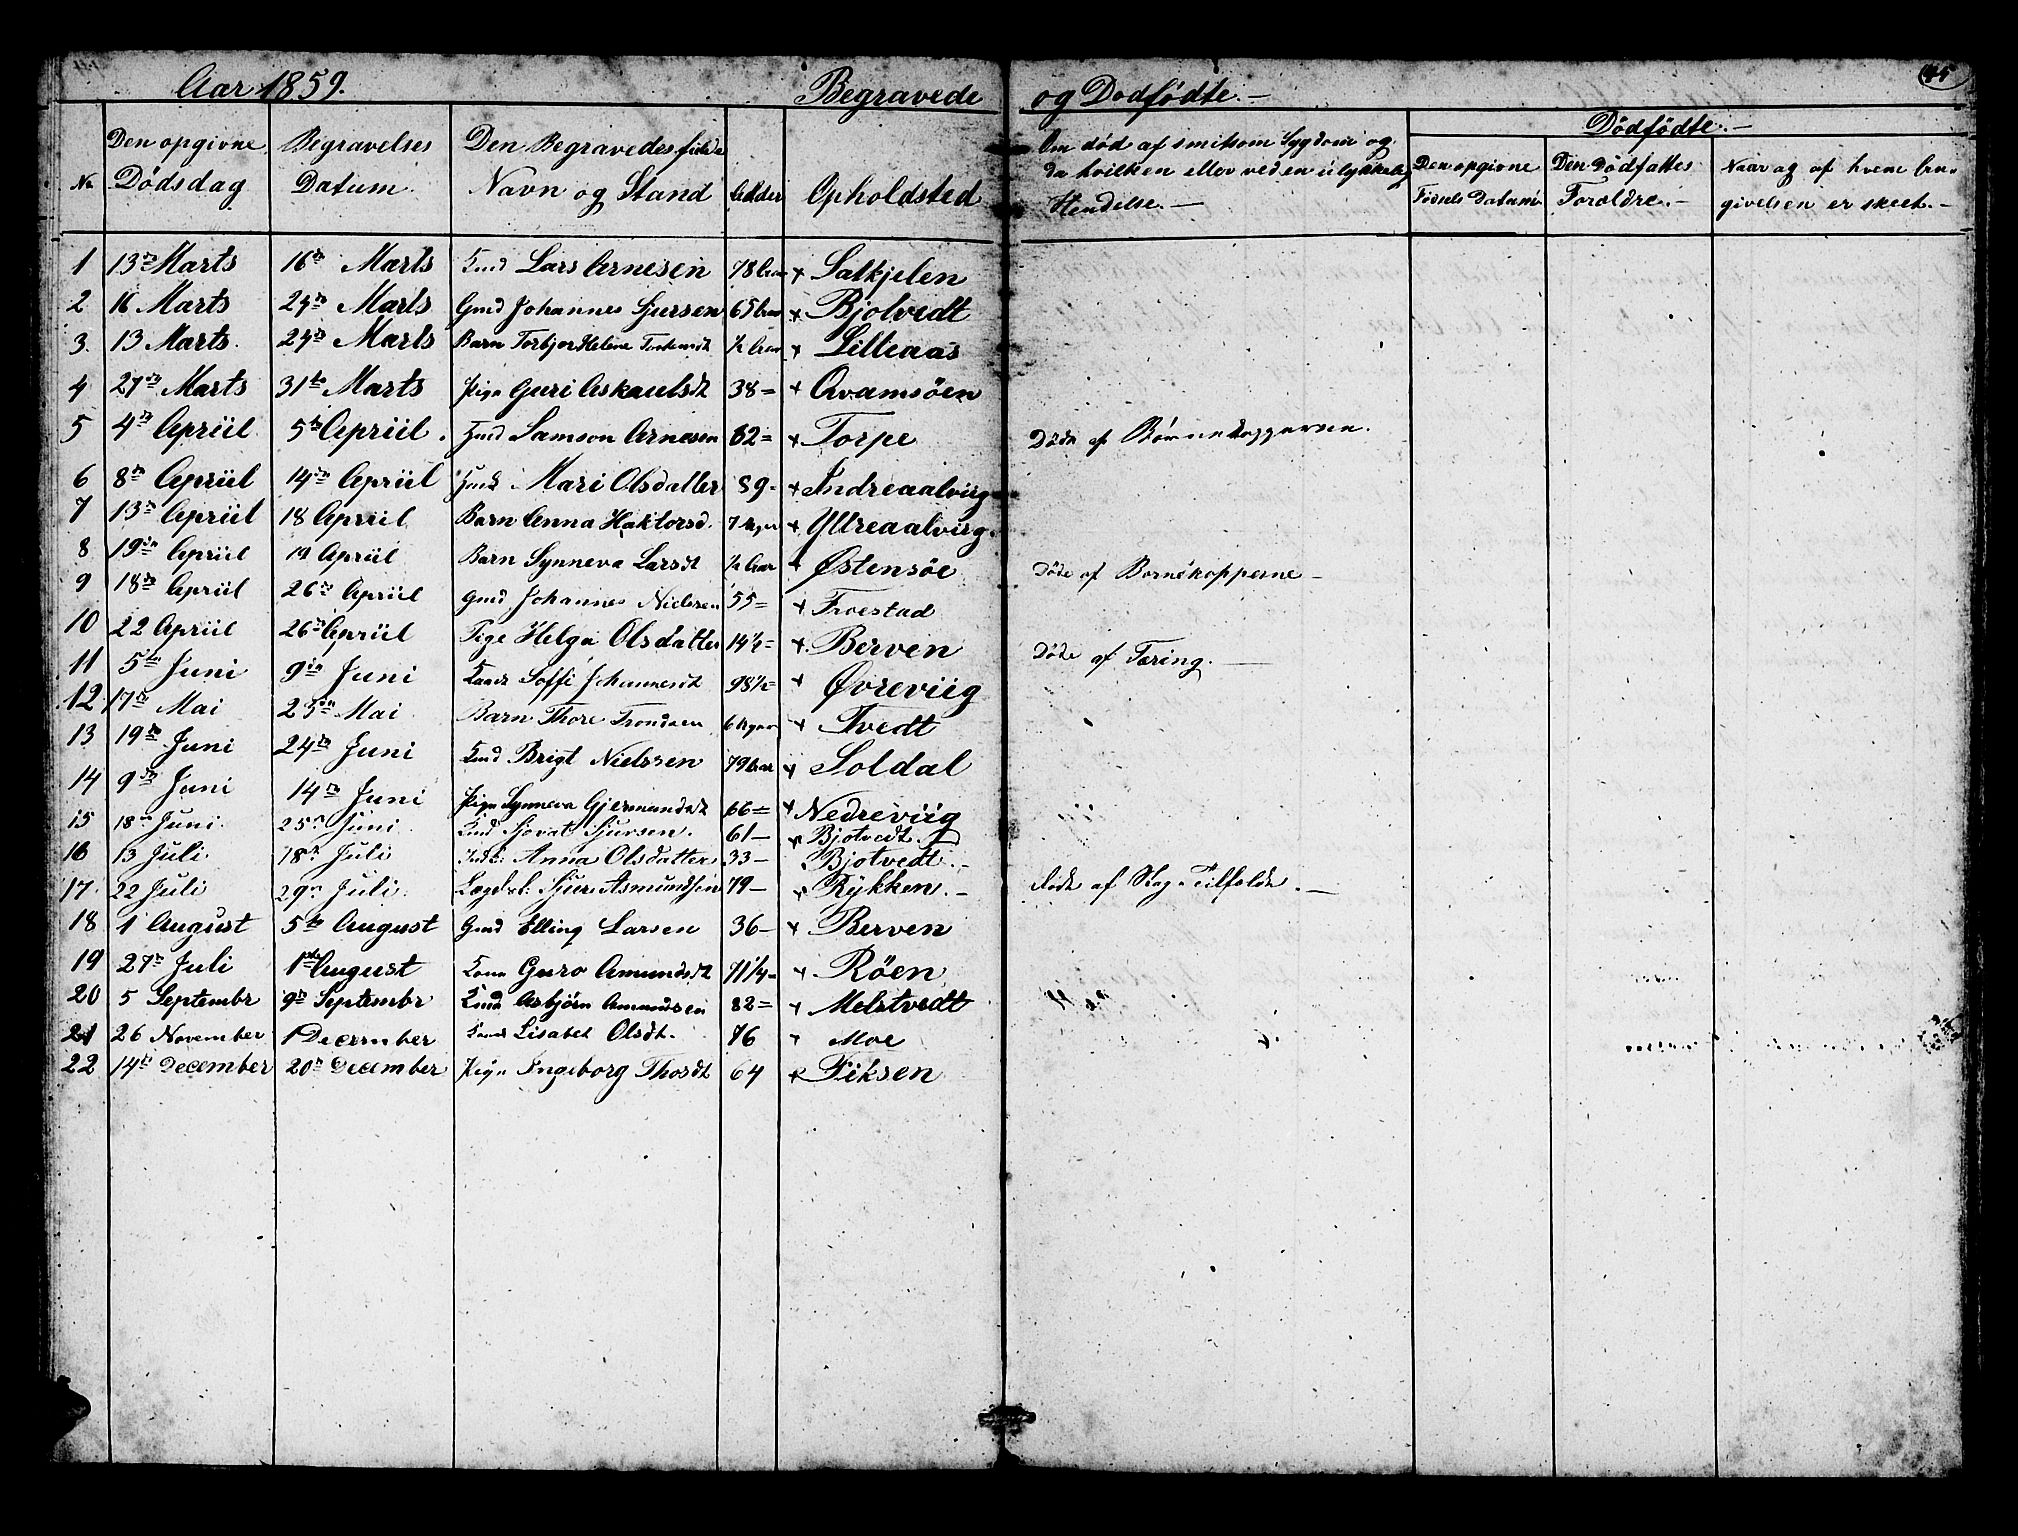 Aar 1859. Begravede og Dodfödte.- 45
Dödfödte.-
No Den opgivne Dödsdag Begravelses Datum. Den Begravedes fulde Navn og Stand Alder Opholdsted Om död af smitsom Sygdom og da hvilken eller ved en ulykkelig Hendelse.- Den opgivne Födsels Datum Den Dödfödtes Foroldre.- Naar og af hvem begivelsen er skeet.-
1 13de Marts 16de Marts Kmd Lars Arnesen 78 Aar + Latkjelen
2 16 Marts 24de Marts Gmd Johannes Sjursen 65 Aar + Bjotvedt
3. 13 Marts. 24de Marts Barn Torbjor Helene ½ Aar + Lilleaas
4 27de Marts 31te Marts Pige Guri Askaulsdt 38= + Qvamsöen
5 4de Apriil 5te Apriil. Kmd Samson Arnesen 82= + Torpe Döde af Börnekopperne.
6 8de Apriil 14de Apriil Mari Olsdatter 59- + Indreaalviig
7 13de Apriil 18 Apriil Barn Anna Haktorsd. 7 + Yttreaalviig.
8 19de Apriil 19 Apriil Barn Synneva Larsdt ½ Aar + Østensöe Döde af Bornekopperne-
9 18de Apriil 26de Apriil Gmd Johannes Nielsen 55= + Froestad
10 22 Apriil 26de Apriil Pige Helga Olsdatter 14½= +. Berven Döde af Tæring.-
11 5te Juni 9de Juni Soffi Johannesdt 98½= + Øvreviig
12. 17de Mai 23de Mai Barn Thore Trondsen 6 + Tvedt
13 19de Juni 24de Juni Kmd Brigt Nielssen 79 Aar + Soldal
14 9de Juni 14de Juni Pige Synneva Gjermundsdt 66= + Nedreviig
15 18de Juni. 25de Juni Kmd Sjovat Sjursen. 61- + Bjotvedt.
16 13 Juli. 18de Juli Anna Olsdatter 33- Bjotvedt.-
17. 22 Juli 29de Juli. Sjur Asmundsen 79- + Rykken.- Döde af Slag-Tilfælde.-
18 1 August 5te August Gmd Elling Larsen 36- + Berven
19 27de Juli 1ste August Kone Guro Amundsdt 71¼- + Röen
20 5 Septembr 9de Septembr Kmd Asbjörn Amundsen 82= + Melstvedt
21 26 November 1 December Lisabet Olsdt. 76 + Moe
22 14de December 20de December Pige Ingeborg Thosdt 64 + Fiksen